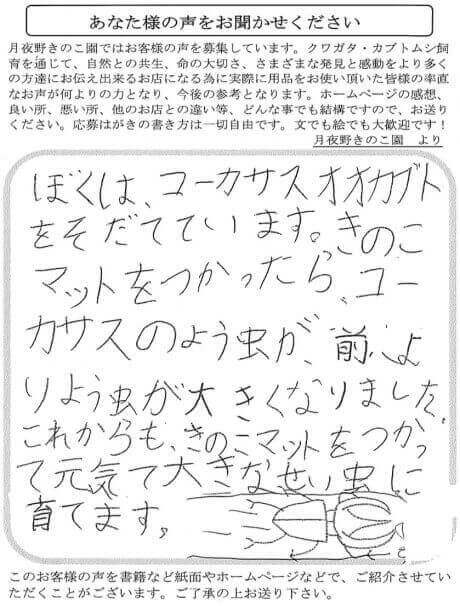 あなた様の声をお聞かせください
月夜野きのこ園ではお客様の声を募集しています。クワガタ・カブトムシ飼
育を通じて、自然との共生、命の大切さ、さまざまな発見と感動をより多く
の方達にお伝え出来るお店になる為に実際に用品をお使い頂いた皆様の率直
なお声が何よりの力となり、今後の参考となります。ホームページの感想、
良い所、悪い所、他のお店との違い等、どんな事でも結構ですので、お送り
ください。応募はがきの書き方は一切自由です。文でも絵でも大歓迎です！
月夜野きのこ園　より
ぼくは、コーカサスオオカブト
をそだてています。きのこ
マットをつかったら、コー
カサスのよう虫が、前、よ
りよう虫が大きくなりました。
これからも、きのこマットをつかっ
て元気て大きなせい虫に
育てます。
このお客様の声を書籍など紙面やホームページなどで、ご紹介させてい
ただくことがございます。ご了承の上お送り下さい。